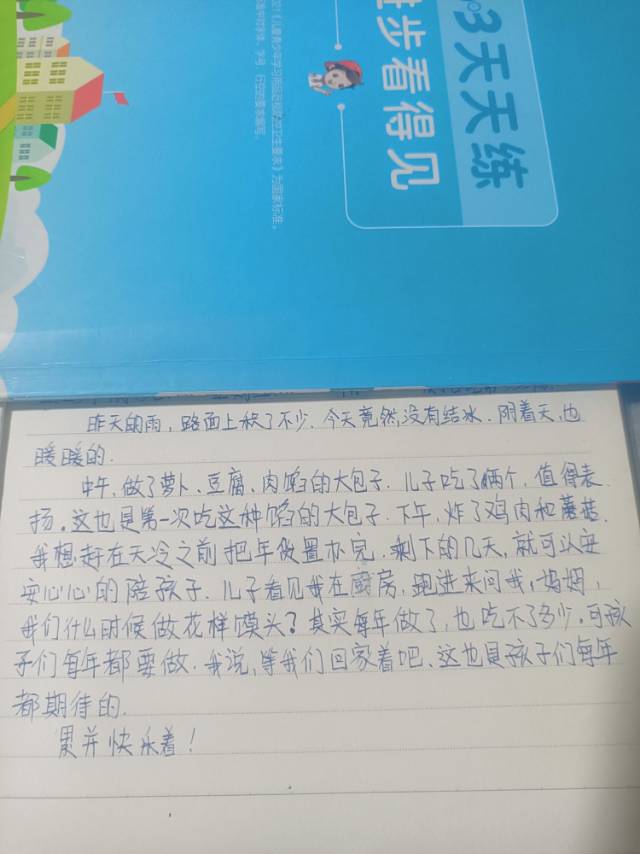 3天天练
进步看得见
昨天的雨，路面上积了不少.今天竟然没有结冰.阴着天,也
暖暖的.
中午,做了萝卜、豆腐、肉馅的大包子.儿子吃了俩个,值得表
扬。这也是第一次吃这种馅的大包子.下午,炸了鸡肉和蘑菇.
我想赶在天冷之前把年货置办完.剩下的几天,就可以安
安心心的陪孩子.儿子看见我在厨房,跑进来问我,妈妈,
我们什么时候做花样馍头?其实每年做了,也吃不了多少。可孩
子们每年都要做.我说,等我们回家着吧、这也是孩子们每年
都期待的.
累并快乐着!